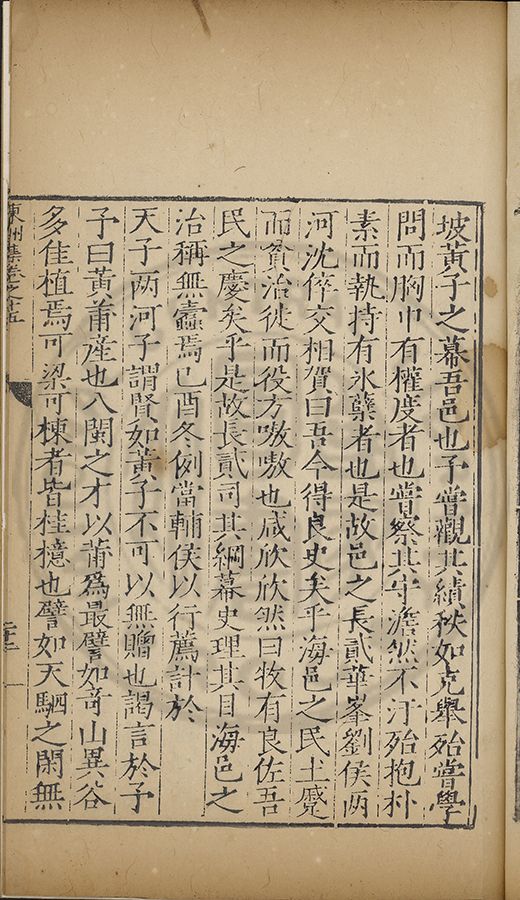 坡黃子之幕吾邑也予嘗觀其績秩如克舉殆嘗學
問而胸中有權度者也嘗察其守澹然不汙殆抱朴
素而執持有氷蘖者也是故邑之長貳華峯劉侯两
河沈倅交相賀曰吾今得良史矣乎海邑之民土蹙
而賁治徙而役方嗷嗷也咸欣欣然曰牧有良佐吾
民之慶矣乎是故長貳司其綱幕史理其目海邑之
治稱無蠧焉巳酉冬例當輔侯以行薦計於
天子两河子謂賢如黃子不可以無贈也謁言於予
予曰黃莆產也八閩之才以莆爲最譬如竒山異谷
多佳植焉可梁可棟者皆桂檍也譬如天駟之閑無
東洲集卷之十五
二十二